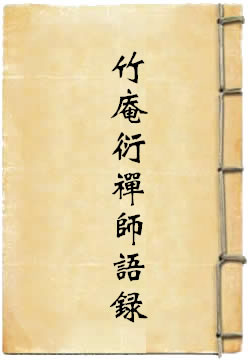 竹庵衍禪師語録